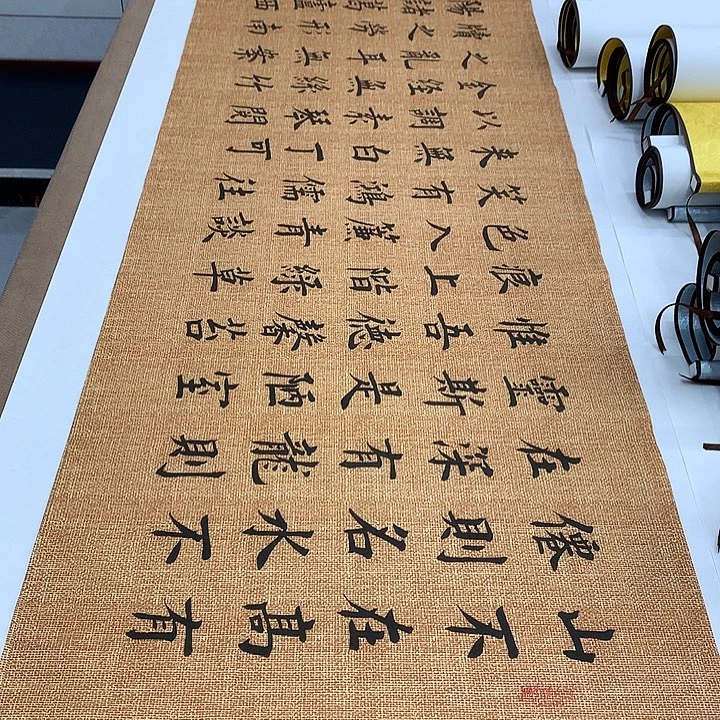 山不在高有
僊則名水不
在深有龍則
靈斯是陋室
惟吾德馨苔
痕上階綠草
色入簾青談
笑有鴻儒往
来無白丁可
以調素琴閱
金經無絲竹
之亂耳無案
牘之勞形南
陽諸葛廬西